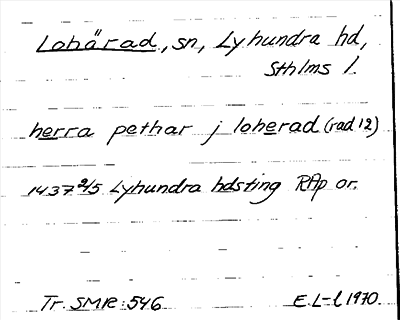 Lohärad, sn, Lyhundra hd,
Sthlms l.
herra pethar j loherad (rad 12)
1437 2/5 Lyhundra hdsting RAp or.
Tr. SMR: 546 E. L-l 1970.